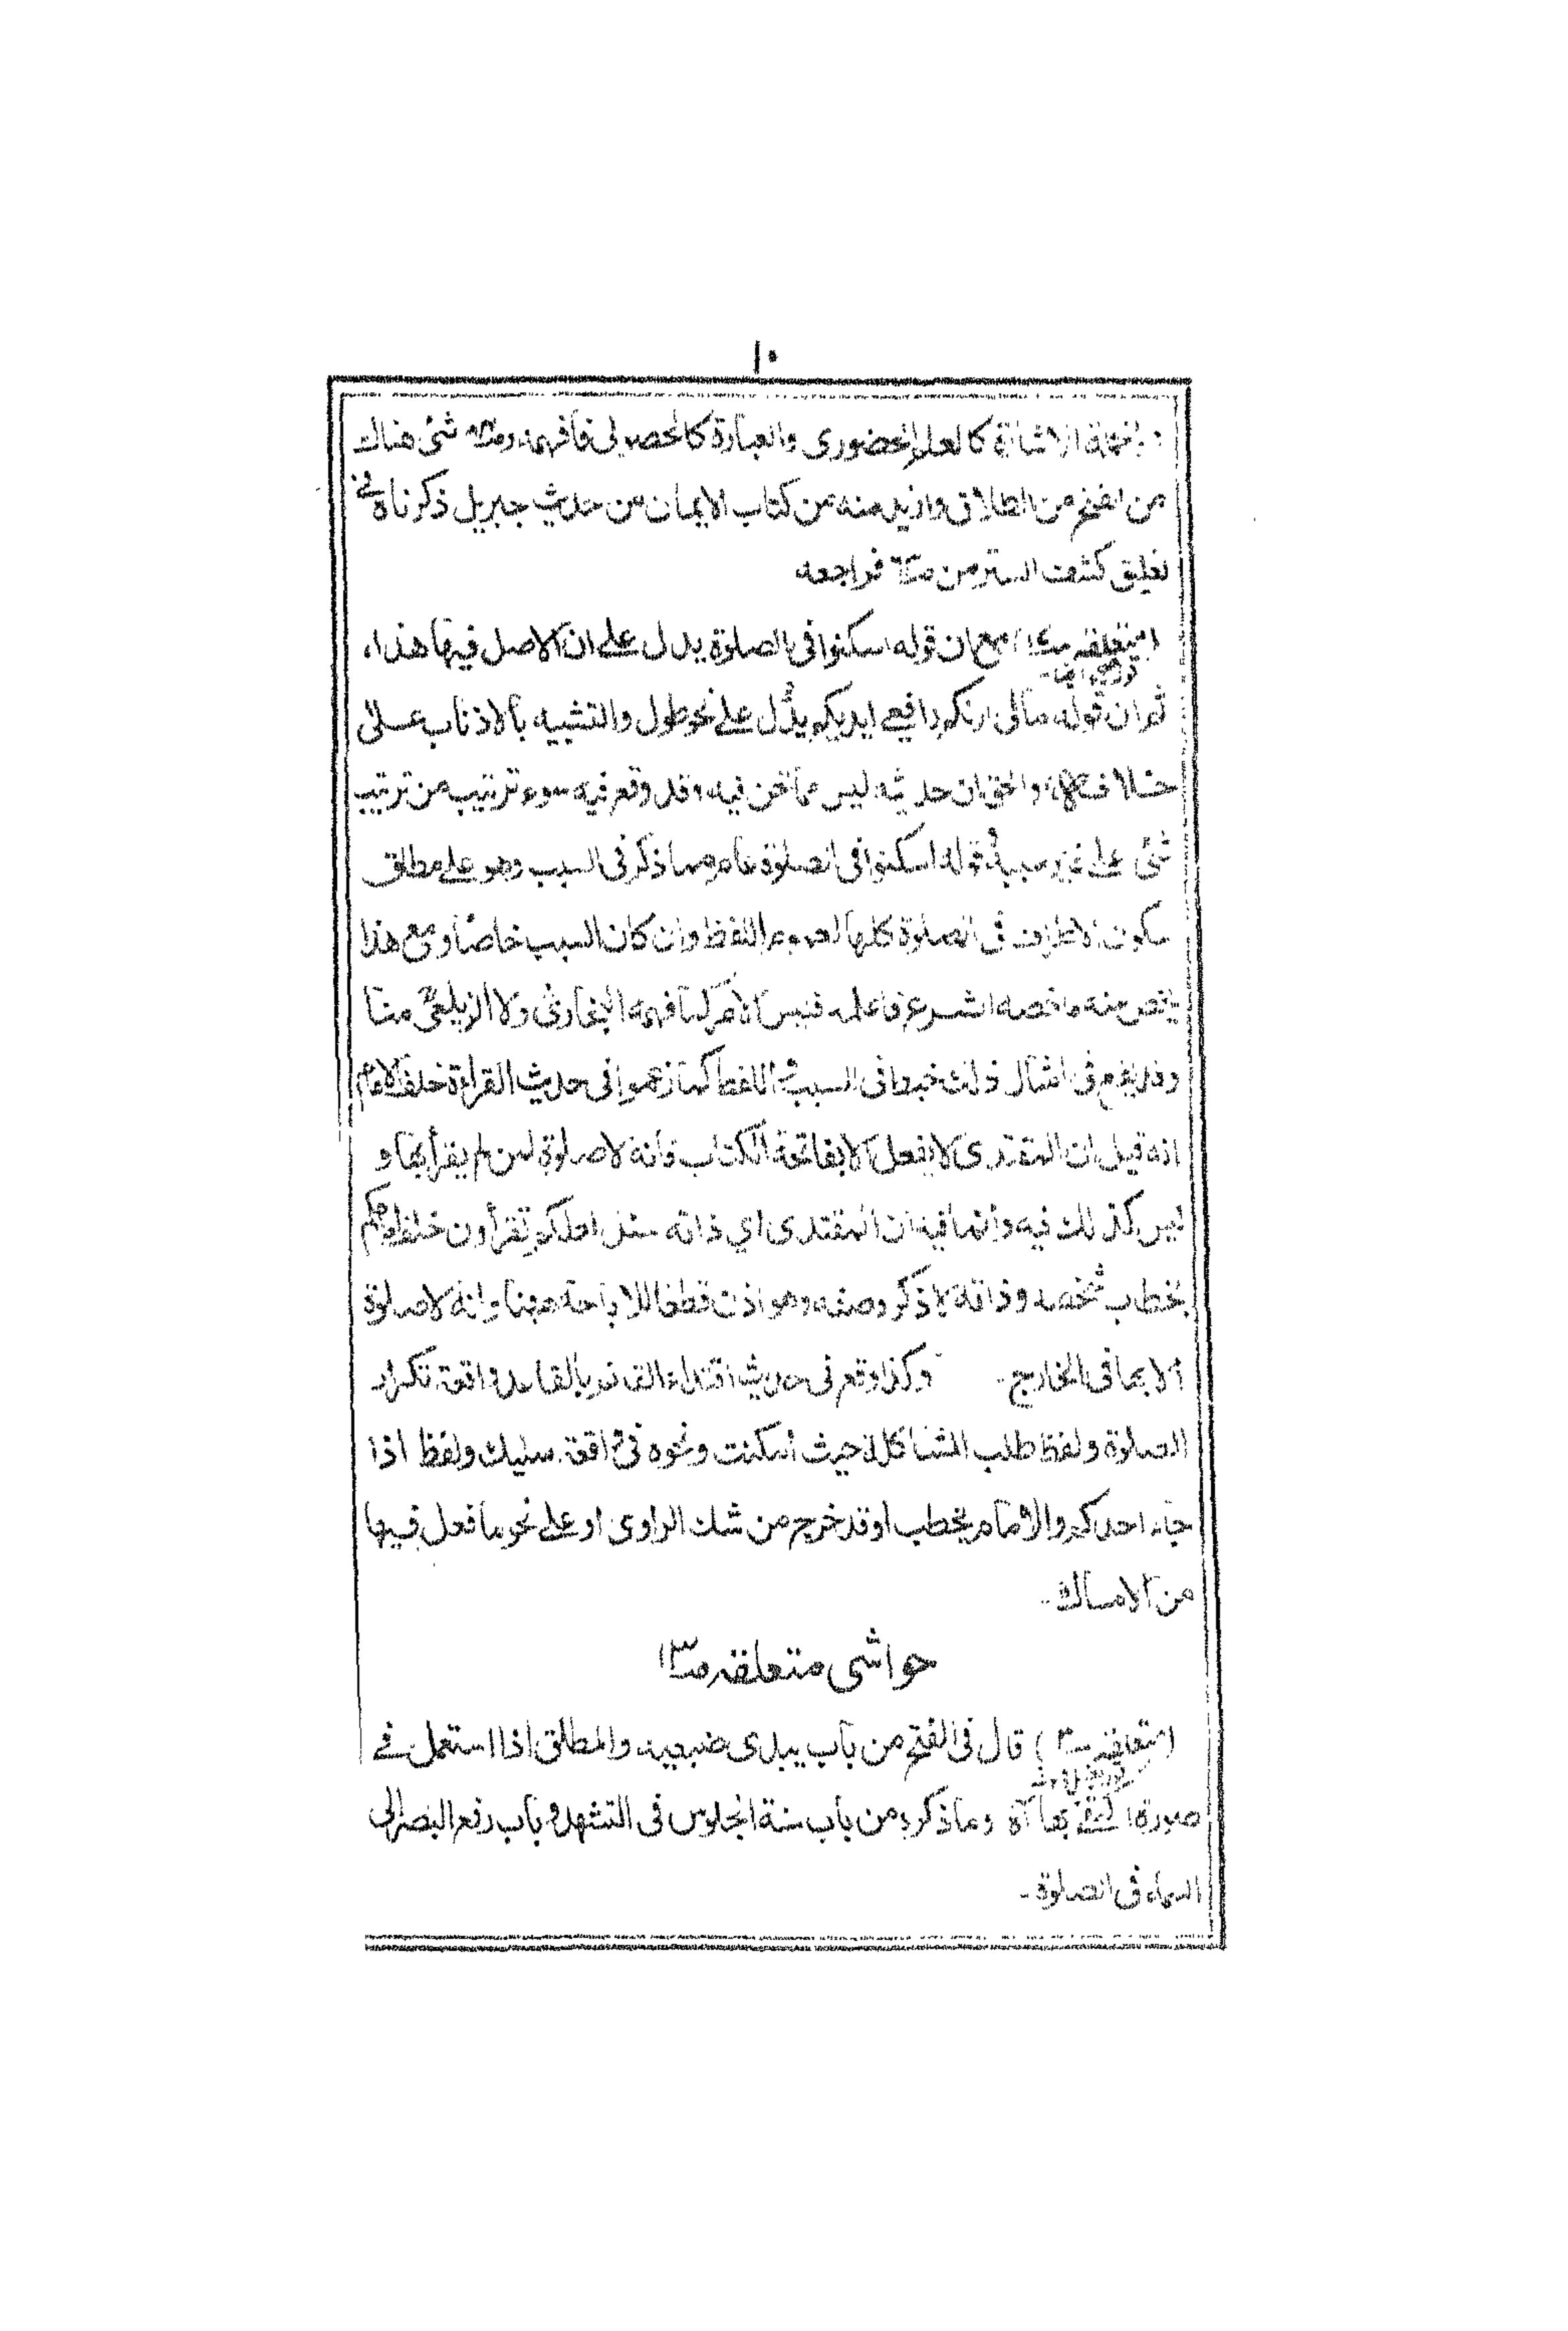 ١٠
الاشارة كالعلم الحضورى والعبارة كالحصولى فافهمه، ومنه شئ هناك
من الفتح من الطلاق وازيد منه من كتاب الايمان من حديث جبريل ذكرناه في
تعليق كشف الستر من فراجعه
(متعلقه) مع ان قوله اسكنوا فى الصلوة يدل على ان الاصل فيها هذا،
ثم ان قوله مالى اراكم رافعى ايديكم يدل على نحو طول والتشبيه بالاذناب على
والحق ان حديثه ليس مما نحن فيه، وقد وقع فيه سوء ترتيب من ترتيب
شئ على غير سببه قوله اسكنوا فى الصلوة عام مما ذكر فى السبب وهو على مطلق
سكون الاطراف فى الصلوة كلها لعموم اللفظ وان كان السبب خاصا ومع هذا
يخص منه ما خصه الشرع فاعلمه فليس الامر كما فهمه البخارى ولا الزيلعى منا
وقد يقع فى امثال ذلك خبط فى السبب اللفظ كما زعموا فى حديث القراءة خلف الامام
انه قيل ان المقتدى لا يفعل الا بفاتحة الكتاب فانه لا صلوة لمن لم يقرأ بها و
ليس كذلك فيه وانما فيه ان المقتدى اي ذاته مثل احدكم تقرأون خلف امامكم
بخطاب شخصه وذاته لا ذكر وصفه وهو اذن قطعا للاباحة وانه لا صلوة
الا بها فى الخارج۔ وكذا وقع فى حديث اقتداء القائم بالقاعد واقعة تكرار
الصلوة ولفظ طلب المشاكلة حيث امكنت ونحوه فى واقعة سليك ولفظ اذا
جاء احدكم والامام يخطب او قد خرج من شك الراوى او على نحو ما فعل فيها
من الامساك۔
حواشى متعلقه ص١٣
(متعلقه) قال فى الفتح من باب يبدى ضبعيه والمطلق اذا استعمل فى
صورة اكتفى بها اه وما ذكره من باب سنة الجلوس فى التشهد وباب رفع البصر الى
السماء فى الصلوة۔